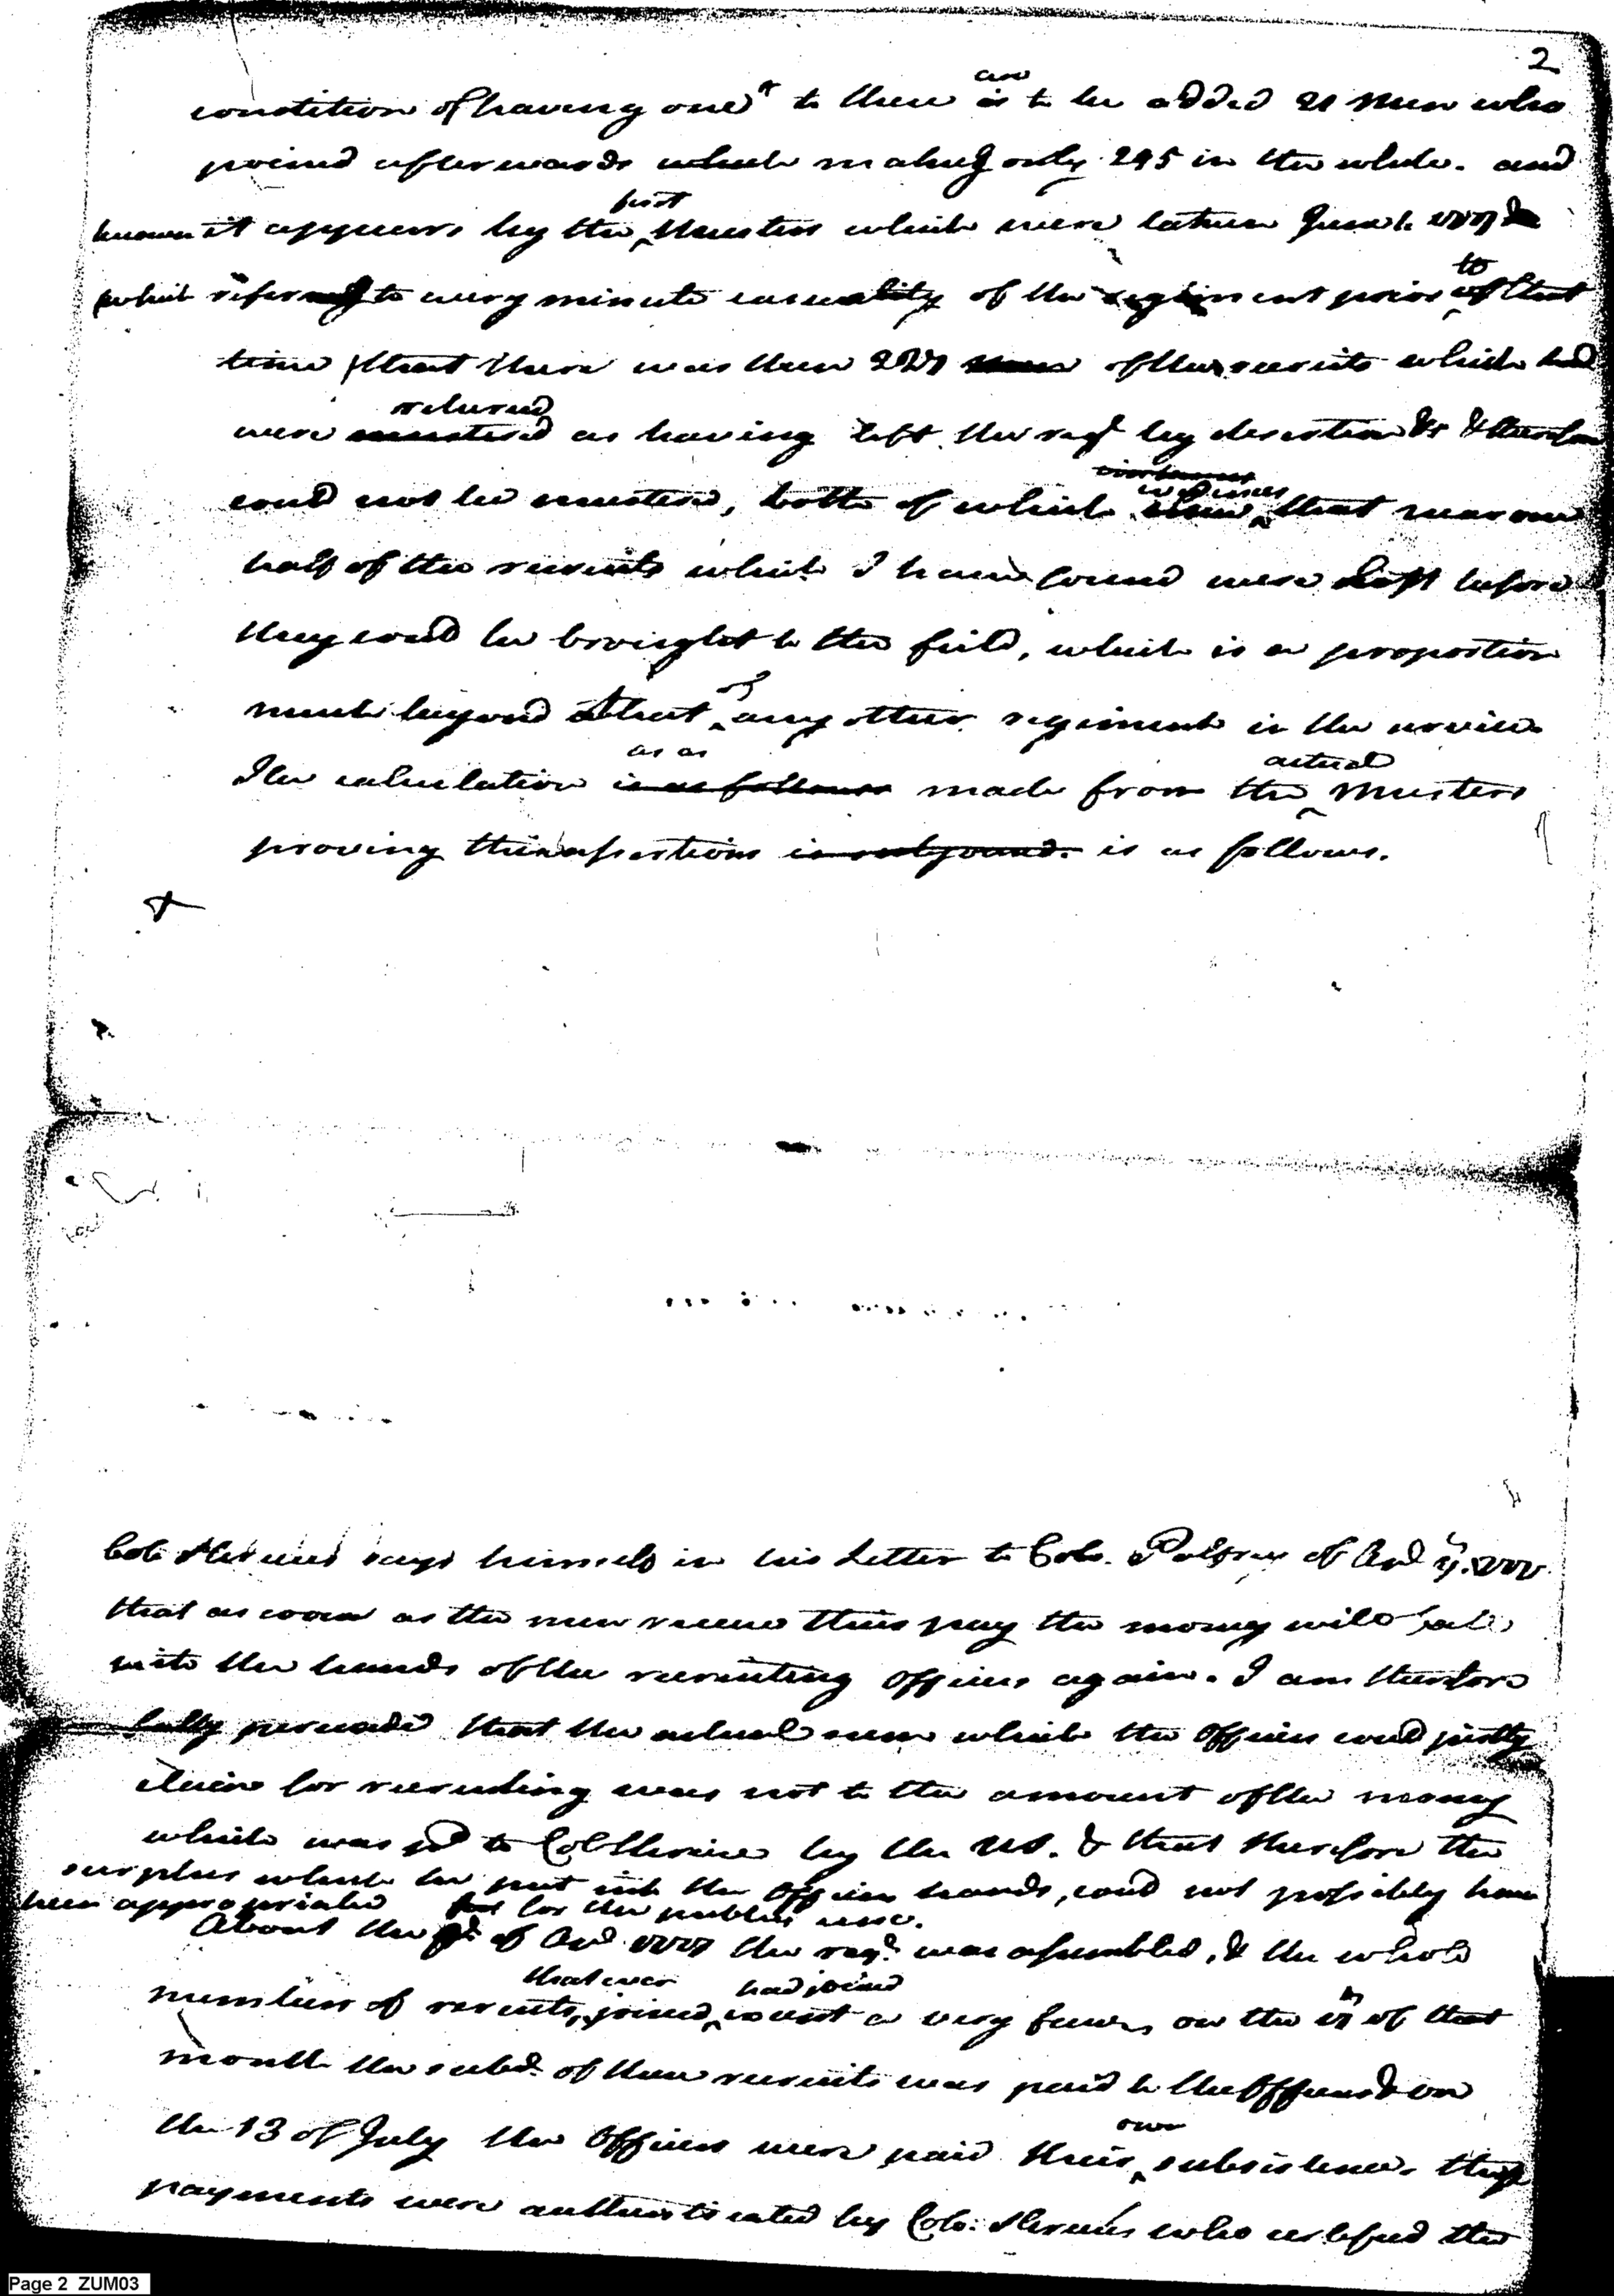 2
condition of having one to these are is to be added 21 men who
joined afterwards which making only 295 in the whole. and
known it appears by the first Musters which were taken
which refer to every minute casuality of the regiment prior to of that
time that there was then of these recruits which had
were returned mustered as having left the regt by desertion &c & therefore
coud not be mustered, both of which evidences that near one
half of the recruits which I have found were lost before
they coud be brought to the field, which is a proportion
much beyond that of any other regiment in the service
The calculation as as is as follows made from the actual Musters
proving this assertions is subjoined. is as follows.
Col. says himself in his Letter to Colo. Palfrey of
that as soon as the men receive their pay the money will fall
into the hands of the recruiting Officers again. I am therefore
fully persuaded that the actual sum which the Officers coud justly
claim for recruiting was not to the amount of the money
which was pd to Col by the US. & that therefore the
surplus which he put into the Officers hands, coud not possibly have
been appropriated for the publics use.
About the of the regt. was assembled, & the whole
number of recruits, that ever joined, had joined except a very few, on the of that
month the subs. of these recruits was paid to the Officers & on
the 13 of July the Officers were paid their own subsistence. these
payments were authenticated by Colo. who certifyed the
Page 2 ZUM03